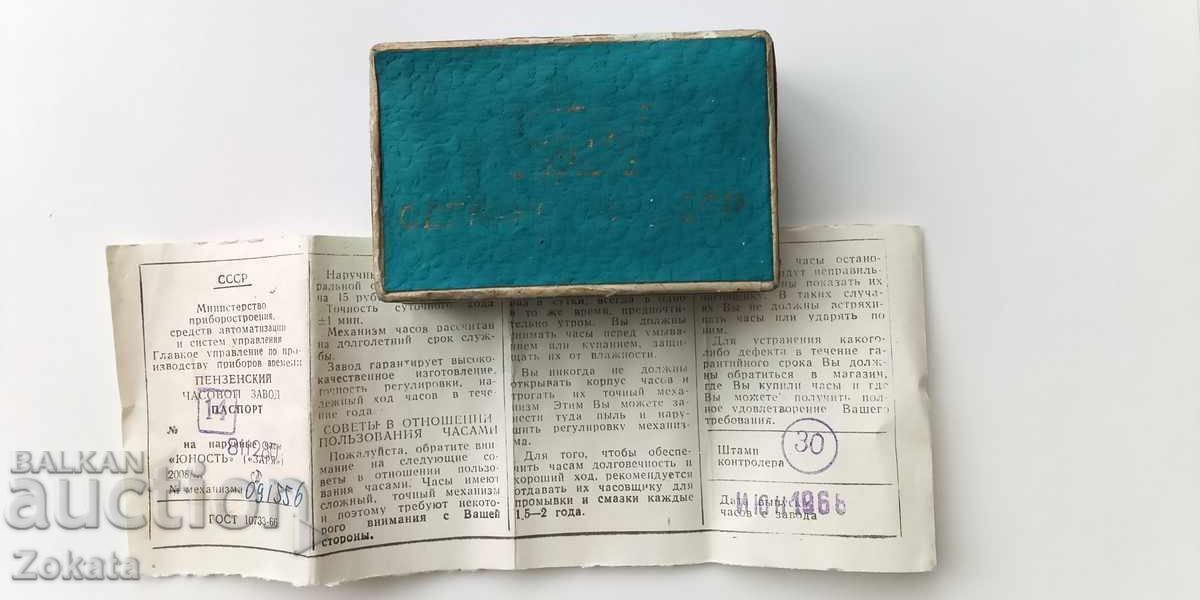 СССР
Министерство
приборостроения,
средств автоматизации
и систем управления
Главное управление по про-
изводству приборов времени
ПЕНЗЕНСКИЙ
ЧАСОВОЙ ЗАВОД
14
ПАСПОРТ
№
на наручные
«ЮНОСТЬ» («ЗАРЯ»)
2008
№ механизма 091556
ГОСТ 10733-66
Наручны
ральной
на 15 руб
Точность суточного хода
±1 мин.
Механизм часов рассчитан
на долголетний срок служ-
бы.
Завод гарантирует высоко-
качественное изготовление,
точность регулировки, на-
дежный ход часов в тече-
ние года
СОВЕТЫ В ОТНОШЕНИИ
ПОЛЬЗОВАНИЯ ЧАСАМИ
Пожалуйста, обратите вни
мание на следующие со-
веты в отношении пользо-
вания часами. Часы имеют
сложный, точный механизм
и поэтому требуют некото-
рого внимания с Вашей
стороны.
раз в сутки, всегда в одно
и то же время, предпочти-
тельно утром. Вы должны
снимать часы перед умыва-
нием или купанием, защи-
щать их от влажности.
Вы никогда не должны
открывать корпус часов и
трогать их точный меха-
низм Этим Вы можете за-
нести туда пыль и нару-
шить регулировку механиз-
ма.
Для того, чтобы обеспе-
чить часам долговечность и
хороший ход, рекомендуется
отдавать их часовщику для
промывки и смазки каждые
1,5—2 года.
часы остано-
дут неправиль-
ны показать их
часовщику. В таких случа-
ях Вы не должны встряхи-
вать часы или ударять по
ним.
Для устранения какого-
либо дефекта в течение га-
рантийного срока Вы долж-
ны обратиться в магазин,
где Вы купили часы и где
Вы можете получить пол-
ное удовлетворение Вашего
требования.
Штамп
контролера
30
Дата выпуска
часов с завода
ИЮН 1968
BALKAN
auction
Zokata